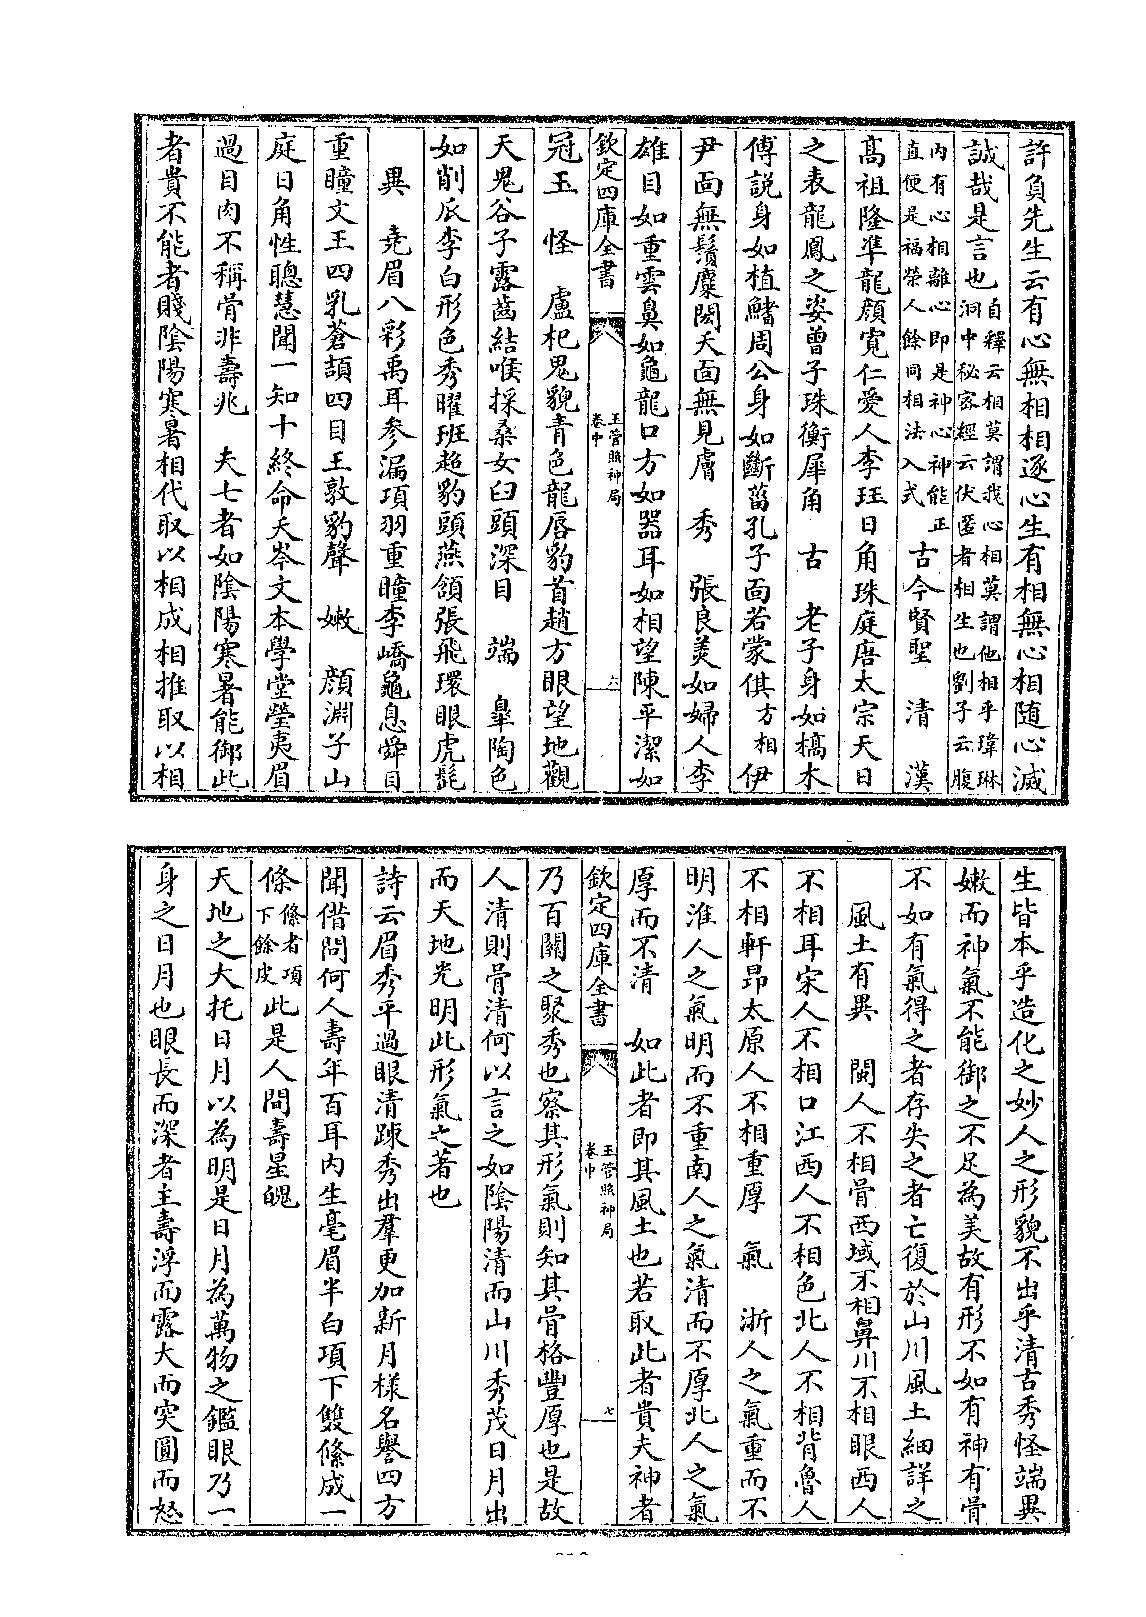 許負先生云有心無相相逐心生有相無心相隨心滅
誠哉是言也自釋云相莫謂我心相莫謂他相乎瑋琳
洞中秘密經云伏匿者相生也劉子云腹
內有心相離心即是神心神能正
直便是福榮人餘同相法入式 古今賢聖 清 漢
高祖隆準龍顔寛仁愛人李珏日角珠庭唐太宗天日
之表龍鳳之姿曾子珠衡犀角 古 老子身如槁木
傅說身如植鰭周公身如斷菑孔子面若蒙倛方相伊
尹面無鬚麋閎夭面無見膚 秀 張良美如婦人李
雄目如重雲鼻如龜龍口方如器耳如相望陳平潔如
欽定四庫全書
玉管照神局
卷中
六
冠玉 怪 盧杞鬼貌青色龍唇豹首趙方眼望地觀
天鬼谷子露齒結喉採桑女臼頭深目 端 臯陶色
如削瓜李白形色秀曜班超豹頭燕頷張飛環眼虎髭
異 堯眉八彩禹耳參漏項羽重瞳李嶠龜息舜目
重瞳文王四乳蒼頡四目王敦豹聲 嫩 顔淵子山
庭日角性聰慧聞一知十終命夭岑文本學堂瑩夷眉
過目肉不稱骨非壽兆 夫七者如隂陽寒暑能御此
者貴不能者賤隂陽寒暑相代取以相成相推取以相
生皆本乎造化之妙人之形貌不出乎清古秀怪端異
嫩而神氣不能御之不足為美故有形不如有神有骨
不如有氣得之者存失之者亡復於山川風土細詳之
風土有異 閩人不相骨西域不相鼻川不相眼西人
不相耳宋人不相口江西人不相色北人不相背魯人
不相軒昂太原人不相重厚 氣 浙人之氣重而不
明淮人之氣明而不重南人之氣清而不厚北人之氣
厚而不清 如此者即其風土也若取此者貴夫神者
欽定四庫全書
玉管照神局
卷中
七
乃百關之聚秀也察其形氣則知其骨格豐厚也是故
人清則骨清何以言之如隂陽清而山川秀茂日月出
而天地光明此形氣之著也
詩云眉秀平過眼清踈秀出羣更加新月樣名譽四方
聞借問何人壽年百耳内生毫眉半白項下雙絛成一
絛絛者項
下餘皮此是人間壽星魄
天地之大托日月以為明是日月為萬物之鑑眼乃一
身之日月也眼長而深者主壽浮而露大而突圓而怒